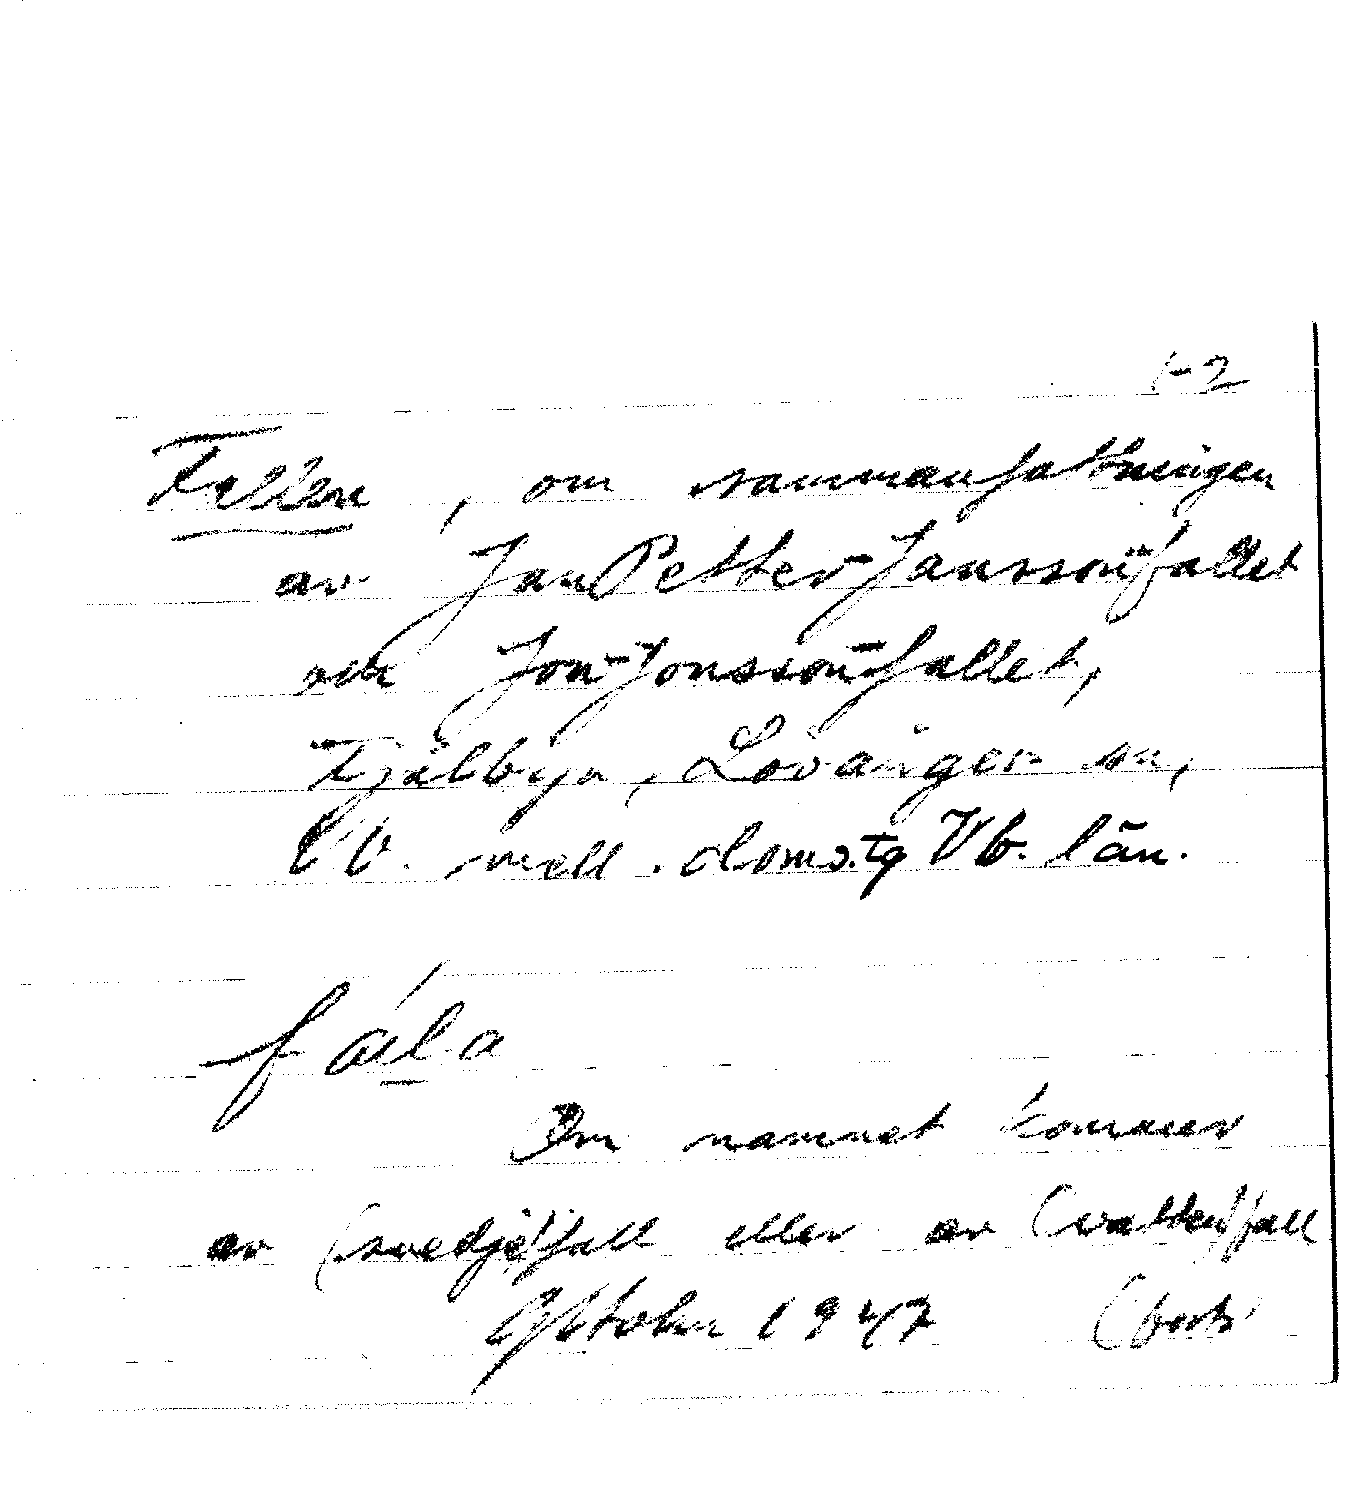 1-2
Fallen, om sammanfattningen
av Jan Petter-Janssonfallet
och Jon-Jonssonfallet,
Fjälbyn, Lövånger sn,
Vb. mell. doms.tg Vb. län.
fála
Om namnet kommer
av (svedje)fall eller av (vatten)fall
Oktober 1947 (forts